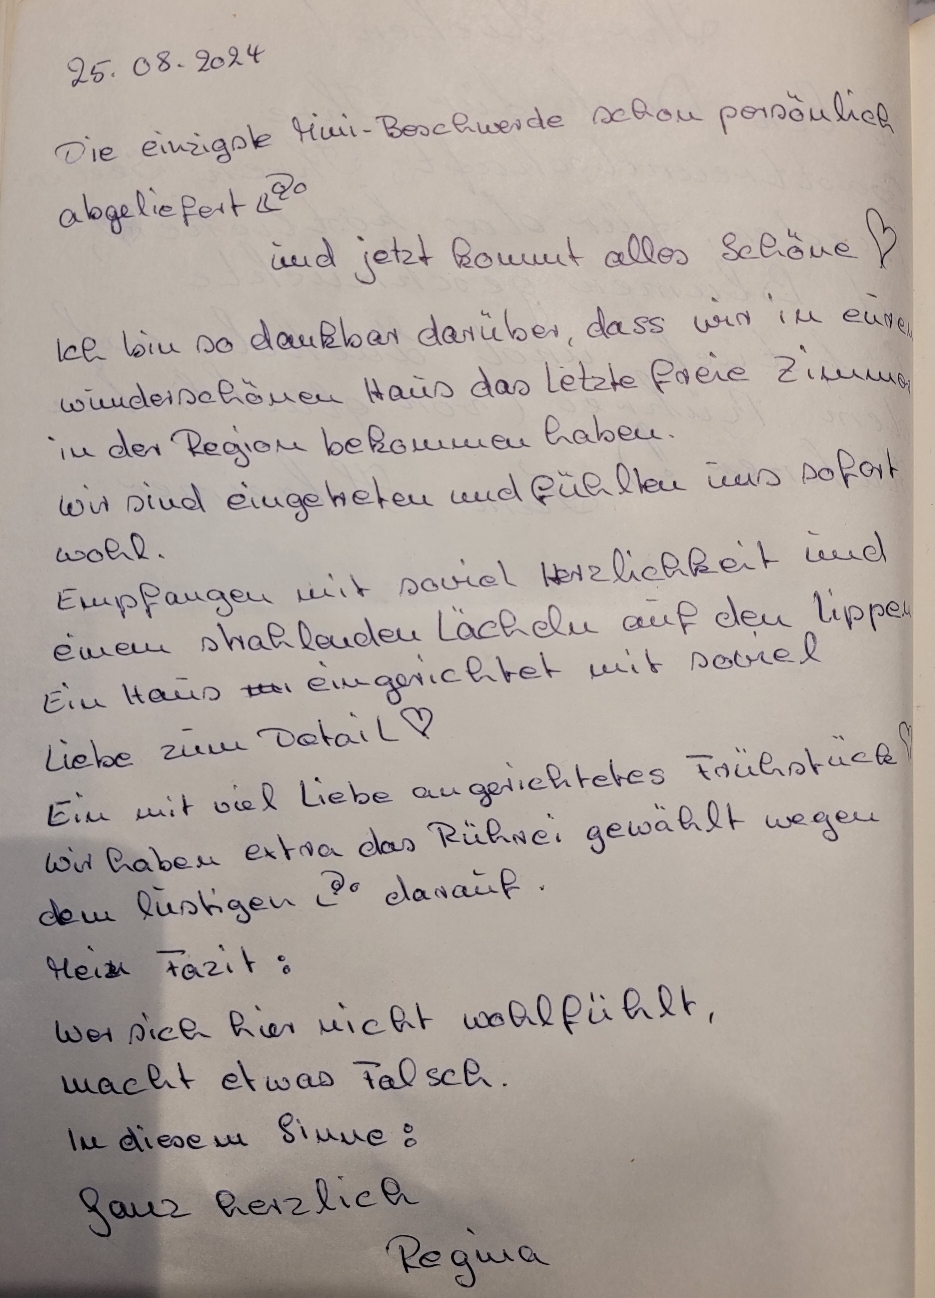 25.08.2024
Die einzigste Mini-Beschwerde schon persönlich
abgeliefert
und jetzt kommt alles Schöne ♡
Ich bin so dankbar darüber, dass wir in euren
wunderschönen Haus das letzte freie Zimmer
in der Region bekommen haben.
Wir sind eingetreten und fühlten uns sofort
wohl.
Empfangen mit soviel Herzlichkeit und
einem strahlenden Lächeln auf den Lippen
Ein Haus eingerichtet mit soviel
Liebe zum Detail ♡
Ein mit viel Liebe angerichtetes Frühstück ♡
Wir haben extra das Rührei gewählt wegen
dem lustigen darauf.
Mein Fazit:
Wer sich hier nicht wohlfühlt,
macht etwas Falsch.
In diesem Sinne:
Ganz herzlich
Regina